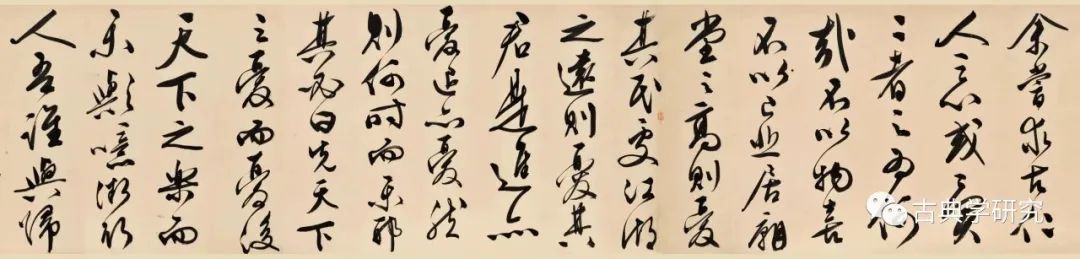 余嘗求古仁
人之心或異
二者之為何
哉不以物喜
不以己悲居廟
堂之高則憂
其民處江湖
之遠則憂其
君是進亦
憂退亦憂然
則何時而樂耶
其必曰先天下
之憂而憂後
天下之樂而
樂歟噫微斯
人吾誰與歸
古典学研究